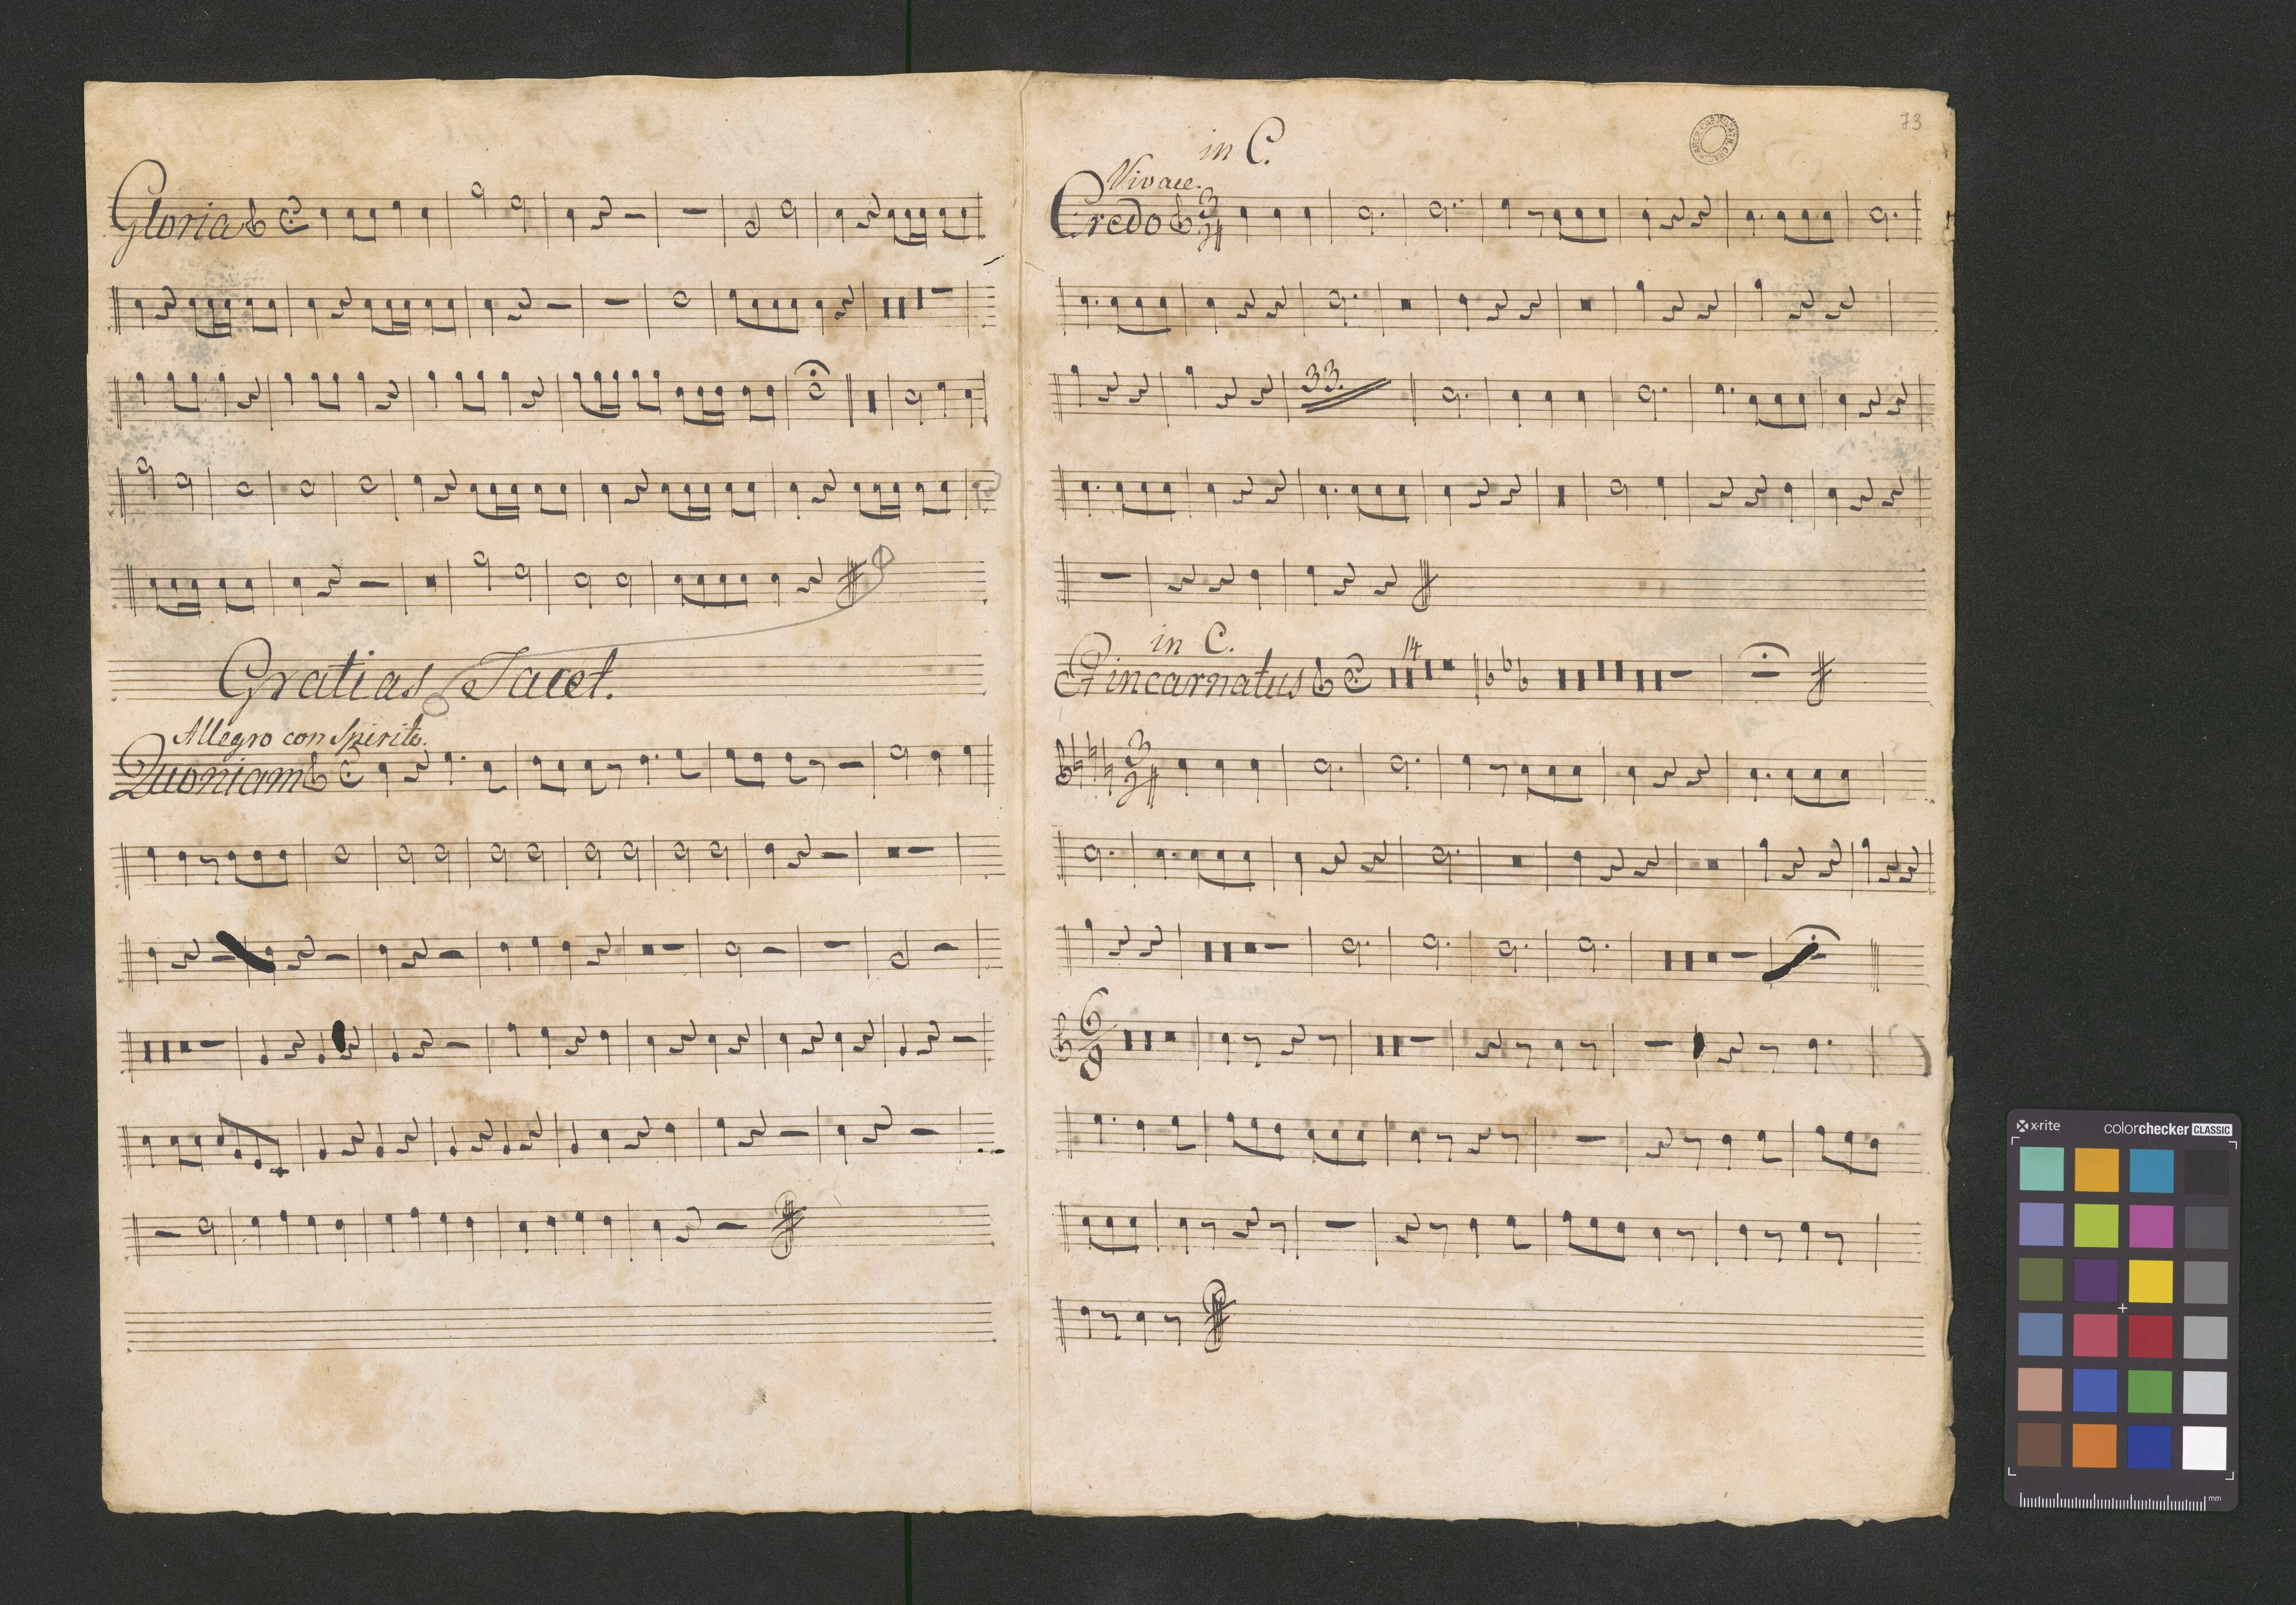 Gloria
Gratias Tacet.
Allegro con Spirito.
Quoniam
73
in C.
Vivace.
Credo
3
33.
in C.
14
Et incarnatus
3
6
8
x-rite
colorchecker CLASSIC
mm